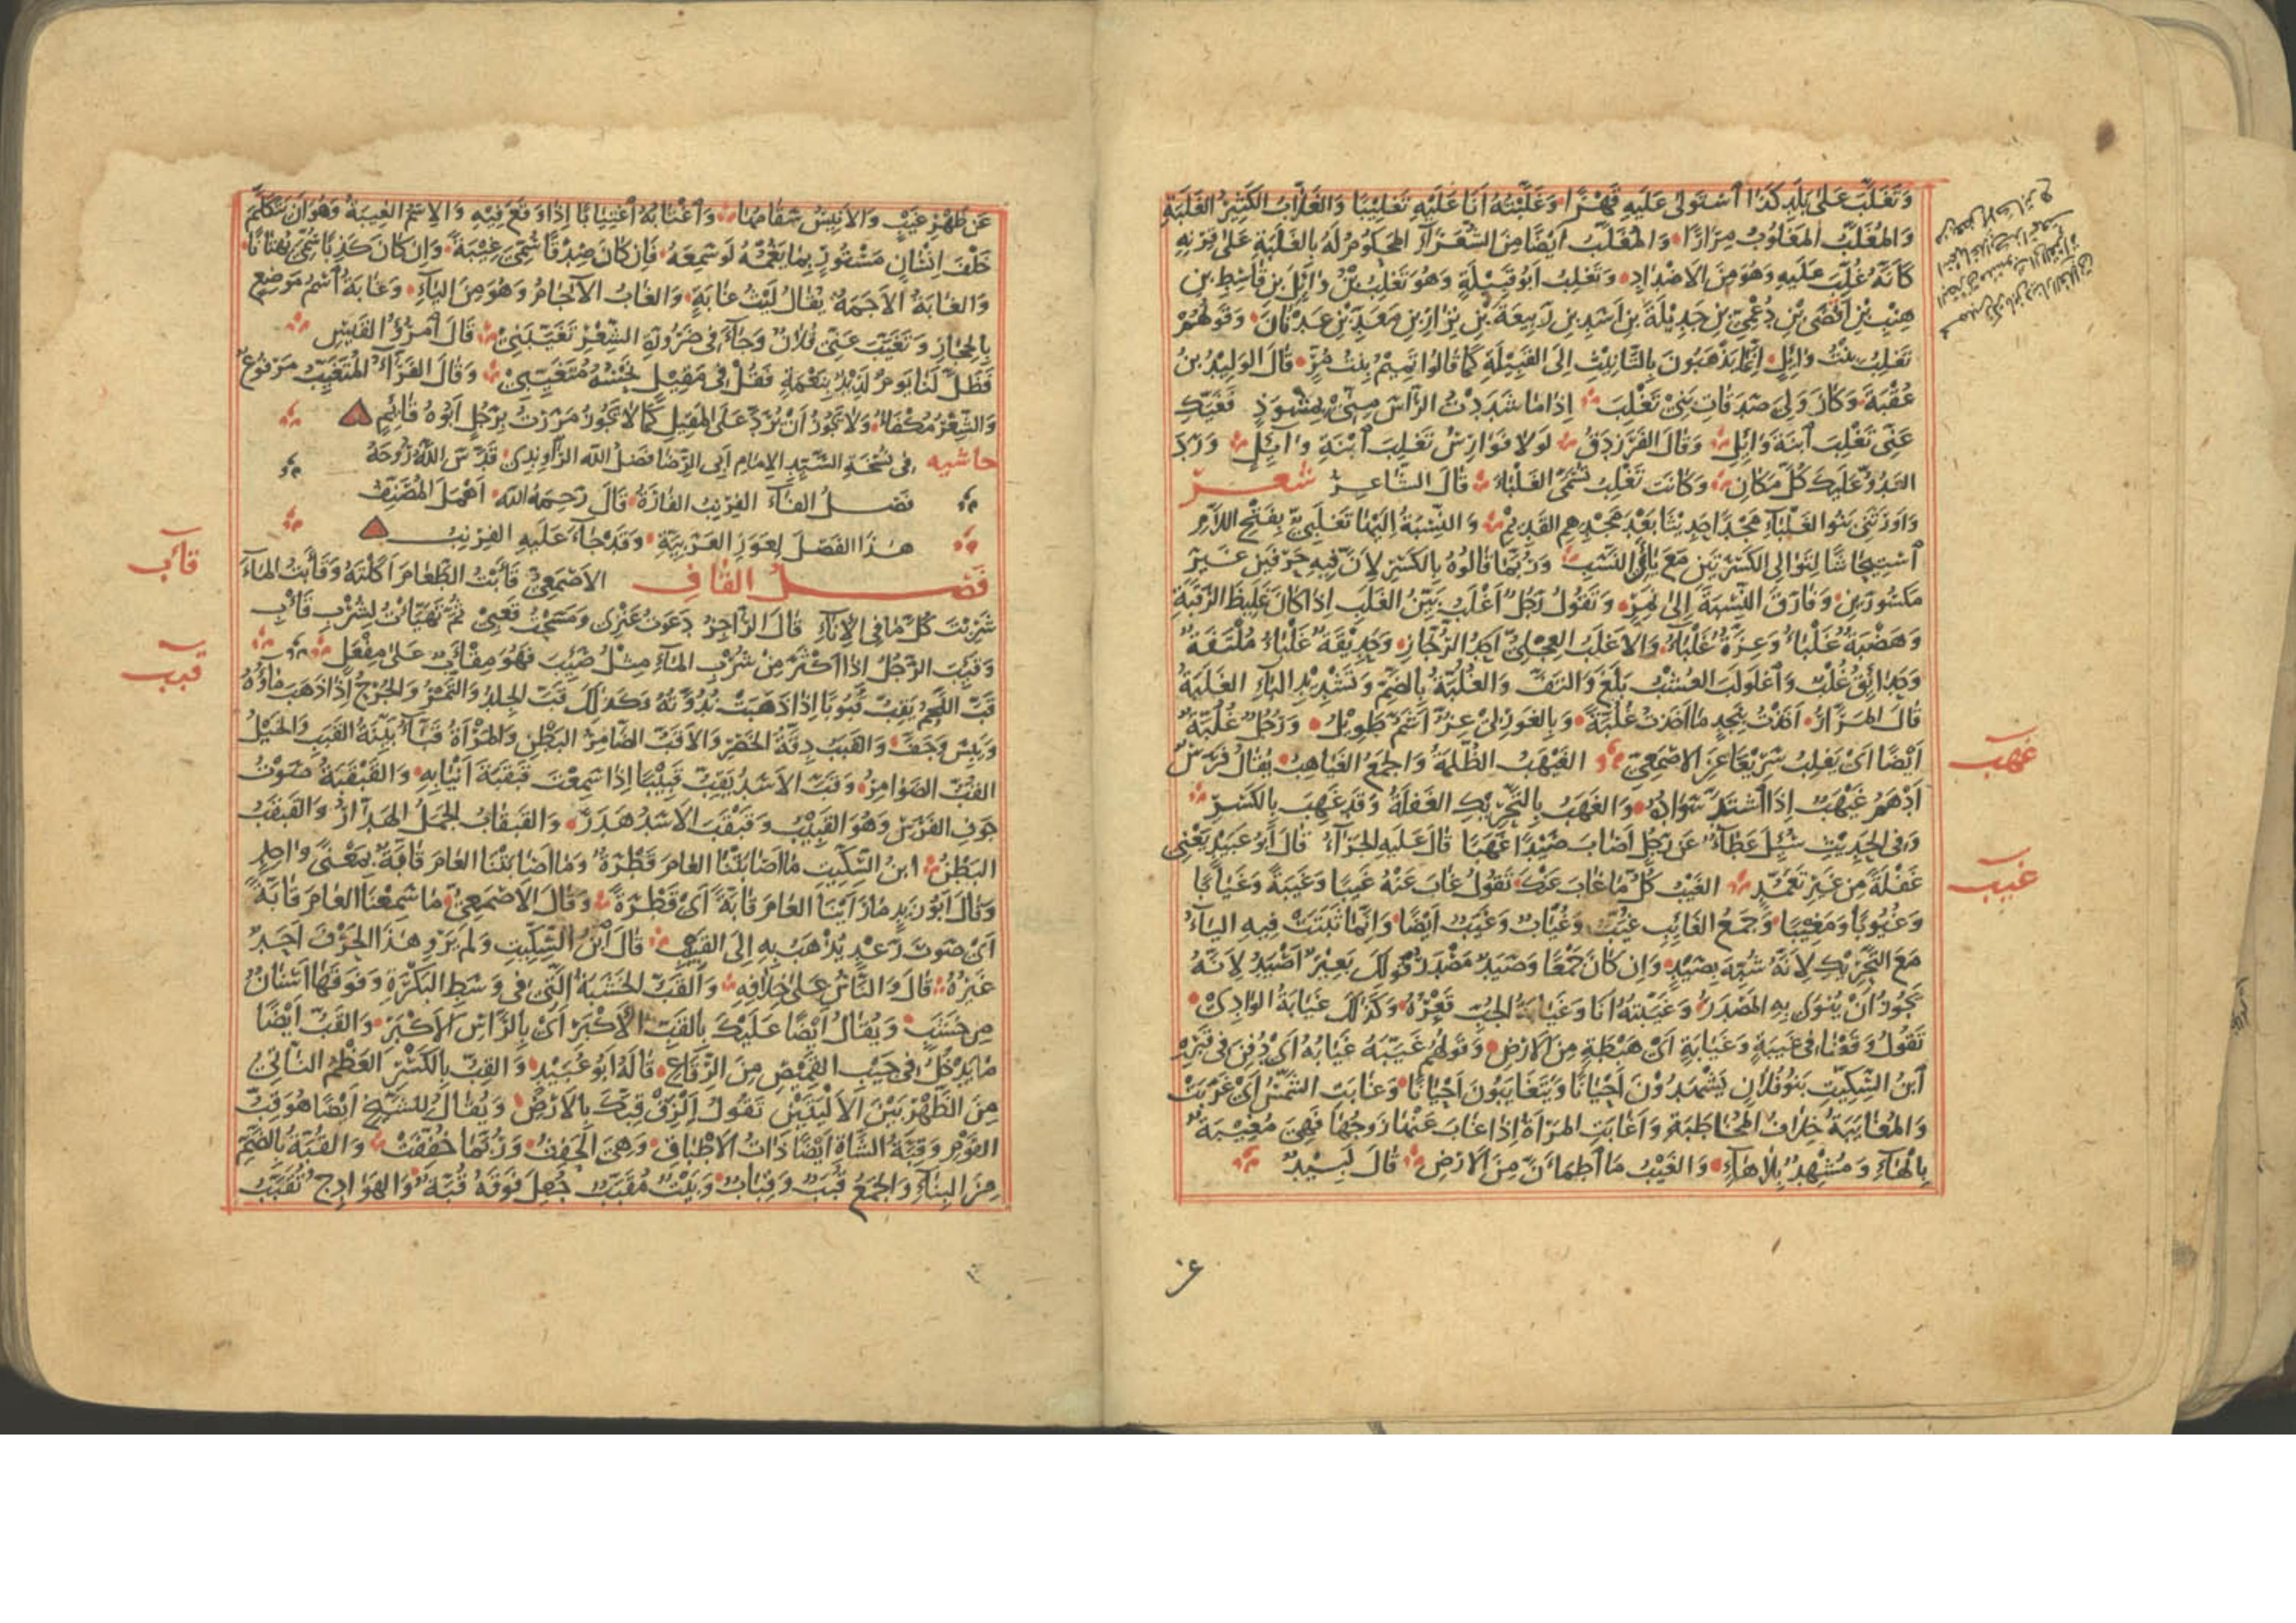 وَتَغَلَّبَ عَلَى بَلَدِ كَذَا اسْتَوْلَى عَلَيْهِ قَهْرًا وَغَلَّبْتُهُ أَنَا عَلَيْهِ تَغْلِيبًا وَالغَلَّابُ الكَثِيرُ الغَلَبَةِ
وَالمُغَلَّبُ المَغْلُوبُ مِرَارًا وَالمُغَلَّبُ أَيْضًا مِنَ الشُّعَرَاءِ المَحْكُومُ لَهُ بِالغَلَبَةِ عَلَى قِرْنِهِ
كَأَنَّهُ غُلِّبَ عَلَيْهِ وَهُوَ مِنَ الأَضْدَادِ وَتَغْلِبُ أَبُو قَبِيلَةٍ وَهُوَ تَغْلِبُ بْنُ وَائِلِ بْنِ قَاسِطِ بْنِ
هِنْبِ بْنِ أَفْصَى بْنِ دُعْمِيِّ بْنِ جَدِيلَةَ بْنِ أَسَدِ بْنِ رَبِيعَةَ بْنِ نِزَارِ بْنِ مَعَدِّ بْنِ عَدْنَانَ وَقَوْلُهُمْ
تَغْلِبُ بِنْتُ وَائِلٍ إِنَّمَا يَذْهَبُونَ بِالتَّأْنِيثِ إِلَى القَبِيلَةِ كَمَا قَالُوا تَمِيمُ بِنْتُ مُرٍّ قَالَ الوَلِيدُ بْنُ
عُقْبَةَ وَكَانَ وَلِيَ صَدَقَاتِ بَنِي تَغْلِبَ إِذَا مَا شَدَدْتُ الرَّأْسَ مِنِّي بِمِشْوَذٍ فَغَيَّكِ
عَنِّي تَغْلِبَ ابْنَةَ وَائِلِ وَقَالَ الفَرَزْدَقُ لَوْلَا فَوَارِسُ تَغْلِبَ ابْنَةِ وَائِلٍ وَرَدَ
العَدُوُّ عَلَيْكَ كُلَّ مَكَانِ وَكَانَتْ تَغْلِبُ تُسَمَّى الغَلْبَاءَ قَالَ الشَّاعِرُ شعر
وَأَوْرَثَنِي بَنُو الغَلْبَاءِ مَجْدًا حَدِيثًا بَعْدَ مَجْدِهِمِ القَدِيمِ وَالنِّسْبَةُ إِلَيْهَا تَغْلَبِيٌّ بِفَتْحِ اللَّامِ
اسْتِيحَاشًا لِتَوَالِي الكَسْرَتَيْنِ مَعَ يَائَيِ النَّسَبِ وَرُبَّمَا قَالُوهُ بِالكَسْرِ لِأَنَّ فِيهِ حَرْفَيْنِ غَيْرَ
مَكْسُورَيْنِ وَفَارَقَ النِّسْبَةَ إِلَى نَمِرٍ وَتَقُولُ رَجُلٌ أَغْلَبُ بَيِّنُ الغَلَبِ إِذَا كَانَ غَلِيظَ الرَّقَبَةِ
وَهَضْبَةٌ غَلْبَاءُ وَعِزَّةٌ غَلْبَاءُ وَالأَغْلَبُ العِجْلِيُّ أَحَدُ الرُّجَّازِ وَحَدِيقَةٌ غَلْبَاءُ مُلْتَفَّةٌ
وَحَدَائِقُ غُلْبٌ وَاغْلَوْلَبَ العُشْبُ بَلَغَ وَالتَفَّ وَالغُلُبَّةُ بِالضَّمِّ وَتَشْدِيدِ البَاءِ الغَلَبَةُ
قَالَ المَرَّارُ أَخَذْتُ بِنَجْدٍ مَا أَخَذْتُ غُلُبَّةً وَبِالغَوْرِ لِي عِزٌّ أَشَمُّ طَوِيلُ وَرَجُلٌ غُلُبَّةٌ
أَيْضًا أَيْ يَغْلِبُ سَرِيعًا عَنِ الأَصْمَعِيِّ الغَيْهَبُ الظُّلْمَةُ وَالجَمْعُ الغَيَاهِبُ يُقَالُ فَرَسٌ
أَدْهَمُ غَيْهَبٌ إِذَا اشْتَدَّ سَوَادُهُ وَالغَهَبُ بِالتَّحْرِيكِ الغَفْلَةُ وَقَدْ غَهِبَ بِالكَسْرِ
وَفِي الحَدِيثِ سُئِلَ عَطَاءٌ عَنْ رَجُلٍ أَصَابَ صَيْدًا غَهَبًا قَالَ عَلَيْهِ الجَزَاءُ قَالَ أَبُو عُبَيْدٍ يَعْنِي
غَفْلَةً مِنْ غَيْرِ تَعَمُّدٍ الغَيْبُ كُلُّ مَا غَابَ عَنْكَ تَقُولُ غَابَ عَنْهُ غَيْبًا وَغَيْبَةً وَغَيَابًا
وَغُيُوبًا وَمَغِيبًا وَجَمْعُ الغَائِبِ غُيَّبٌ وَغُيَّابٌ وَغَيَبٌ أَيْضًا وَإِنَّمَا ثَبَتَتْ فِيهِ اليَاءُ
مَعَ التَّحْرِيكِ لِأَنَّهُ شُبِّهَ بِصَيَدٍ وَإِنْ كَانَ جَمْعًا وَصَيَدٌ مَصْدَرُ قَوْلِكَ بَعِيرٌ أَصْيَدُ لِأَنَّهُ
يَجُوزُ أَنْ يُنْوَى بِهِ المَصْدَرُ وَغَيَّبْتُهُ أَنَا وَغَيَابَةُ الجُبِّ قَعْرُهُ وَكَذَلِكَ غَيَابَةُ الوَادِي
تَقُولُ وَقَعْنَا فِي غَيْبَةٍ وَغَيَابَةٍ أَيْ هَبْطَةٍ مِنَ الأَرْضِ وَقَوْلُهُمْ غَيَّبَهُ غَيَابُهُ أَيْ دُفِنَ فِي قَبْرِهِ
ابْنُ السِّكِّيتِ بَنُو فُلَانٍ يَشْهَدُونَ أَحْيَانًا وَيَتَغَايَبُونَ أَحْيَانًا وَغَابَتِ الشَّمْسُ أَيْ غَرَبَتْ
وَالمُغَايَبَةُ خِلَافُ المُخَاطَبَةِ وَأَغَابَتِ المَرْأَةُ إِذَا غَابَ عَنْهَا زَوْجُهَا فَهِيَ مُغِيبَةٌ
بِالهَاءِ وَمُشْهِدٌ بِلَا هَاءٍ وَالغَيْبُ مَا اطْمَأَنَّ مِنَ الأَرْضِ قَالَ لَبِيدٌ
غهب
غيب
عَنْ ظَهْرِ غَيْبٍ وَالأَنِيسُ سَقَامُهَا وَاغْتَابَهُ اغْتِيَابًا إِذَا وَقَعَ فِيهِ وَالاسْمُ الغِيبَةُ وَهُوَ أَنْ يَتَكَلَّمَ
خَلْفَ إِنْسَانٍ مَسْتُورٍ بِمَا يَغُمُّهُ لَوْ سَمِعَهُ فَإِنْ كَانَ صِدْقًا سُمِّيَ غِيبَةً وَإِنْ كَانَ كَذِبًا سُمِّيَ بُهْتَانًا
وَالغَابَةُ الأَجَمَةُ يُقَالُ لَيْثُ غَابَةٍ وَالغَابُ الآجَامُ وَهُوَ مِنَ اليَاءِ وَغَابَةُ اسْمُ مَوْضِعٍ
بِالحِجَازِ وَتَغَيَّبَ عَنِّي فُلَانٌ وَجَاءَ فِي ضَرُورَةِ الشِّعْرِ تَغَيَّبَنِي قَالَ امْرُؤُ القَيْسِ
فَظَلَّ لَنَا يَوْمٌ لَذِيذٌ بِنَعْمَةٍ فَقُلْ فِي مَقِيلٍ نَحْسُهُ مُتَغَيِّبِي وَقَالَ الفَرَّاءُ المُتَغَيِّبُ مَرْفُوعٌ
وَالشِّعْرُ مُكْفَأٌ وَلَا يَجُوزُ أَنْ يُرَدَّ عَلَى المَقِيلِ كَمَا لَا يَجُوزُ مَرَرْتُ بِرَجُلٍ أَبُوهُ قَائِمٍ
حاشيه فِي نُسْخَةِ السَّيِّدِ الإِمَامِ أَبِي الرِّضَا فَضْلِ اللهِ الرَّاوَنْدِيِّ قَدَّسَ اللَّهُ رُوحَهُ
فَصْلُ الفَاءِ الفِرْنِبُ الفَارَةُ قَالَ رَحِمَهُ اللهُ أَهْمَلَ المُصَنِّفُ
هَذَا الفَصْلَ لِعَوَزِ العَرَبِيَّةِ وَقَدْ جَاءَ عَلَيْهِ الفِرْنِبُ
فَصْلُ القَافِ الأَصْمَعِيُّ قَأَبْتُ الطَّعَامَ أَكَلْتُهُ وَقَأَبْتُ المَاءَ
شَرِبْتُ كُلَّ مَا فِي الإِنَاءِ قَالَ الرَّاجِزُ دَعَوْتُ عَنْزِي وَمَسَحْتُ قَعْبِي ثُمَّ تَهَيَّأْتُ لِشُرْبِ قَأْبِ
وَقَئِبَ الرَّجُلُ إِذَا أَكْثَرَ مِنْ شُرْبِ المَاءِ مِثْلُ صَئِبَ فَهُوَ مِقْأَبٌ عَلَى مِفْعَلٍ
قَبَّ اللَّحْمُ يَقِبُّ قُبُوبًا إِذَا ذَهَبَتْ نُدُوَّتُهُ وَكَذَلِكَ قَبَّ الجِلْدُ وَالتَّمْرُ وَالجُرْحُ إِذَا ذَهَبَ مَاؤُهُ
وَيَبِسَ وَجَفَّ وَالقَبَبُ دِقَّةُ الخَصْرِ وَالأَقَبُّ الضَّامِرُ البَطْنِ وَالمَرْأَةُ قَبَّاءُ بَيِّنَةُ القَبَبِ وَالخَيْلُ
القُبُّ الضَّوَامِرُ وَقَبَّ الأَسَدُ يَقِبُّ قَبِيبًا إِذَا سَمِعْتَ قَبْقَبَةَ أَنْيَابِهِ وَالقَبْقَبَةُ صَوْتُ
جَوْفِ الفَرَسِ وَهُوَ القَبِيبُ وَقَبْقَبَ الأَسَدُ هَدَرَ وَالقَبْقَابُ الجَمَلُ الهَدَّارُ وَالقَبْقَبُ
البَطْنُ ابْنُ السِّكِّيتِ مَا أَصَابَتْنَا العَامَ قَطْرَةٌ وَمَا أَصَابَتْنَا العَامَ قَابَّةٌ بِمَعْنًى وَاحِدٍ
وَقَالَ أَبُو زَيْدٍ مَا رَأَيْنَا العَامَ قَابَّةً أَيْ قَطْرَةً وَقَالَ الأَصْمَعِيُّ مَا سَمِعْنَا العَامَ قَابَّةً
أَيْ صَوْتَ رَعْدٍ يُذْهَبُ بِهِ إِلَى القَبِيبِ قَالَ ابْنُ السِّكِّيتِ وَلَمْ يَرْوِ هَذَا الحَرْفَ أَحَدٌ
غَيْرُهُ قَالَ وَالنَّاسُ عَلَى خِلَافِهِ وَالقَبُّ الخَشَبَةُ الَّتِي فِي وَسَطِ البَكَرَةِ وَفَوْقَهَا أَسْنَانٌ
مِنْ خَشَبٍ وَيُقَالُ أَيْضًا عَلَيْكَ بِالقَبِّ الأَكْبَرِ أَيْ بِالرَّأْسِ الأَكْبَرِ وَالقَبُّ أَيْضًا
مَا يَدْخُلُ فِي جَيْبِ القَمِيصِ مِنَ الرِّقَاعِ قَالَهُ أَبُو عُبَيْدٍ وَالقِبُّ بِالكَسْرِ العَظْمُ النَّاتِئُ
مِنَ الظَّهْرِ بَيْنَ الأَلْيَتَيْنِ تَقُولُ أَلْزِقْ قِبَّكَ بِالأَرْضِ وَيُقَالُ لِلشَّيْخِ أَيْضًا هُوَ قِبُّ
القَوْمِ وَقِبَّةُ الشَّاةِ أَيْضًا ذَاتُ الأَطْبَاقِ وَهِيَ الحَفِثُ وَرُبَّمَا خُفِّفَتْ وَالقُبَّةُ بِالضَّمِّ
مِنَ البِنَاءِ وَالجَمْعُ قُبَبٌ وَقِبَابٌ وَبَيْتٌ مُقَبَّبٌ جُعِلَ فَوْقَهُ قُبَّةٌ وَالهَوَادِجُ تُقَبَّبُ
قأب
قبب